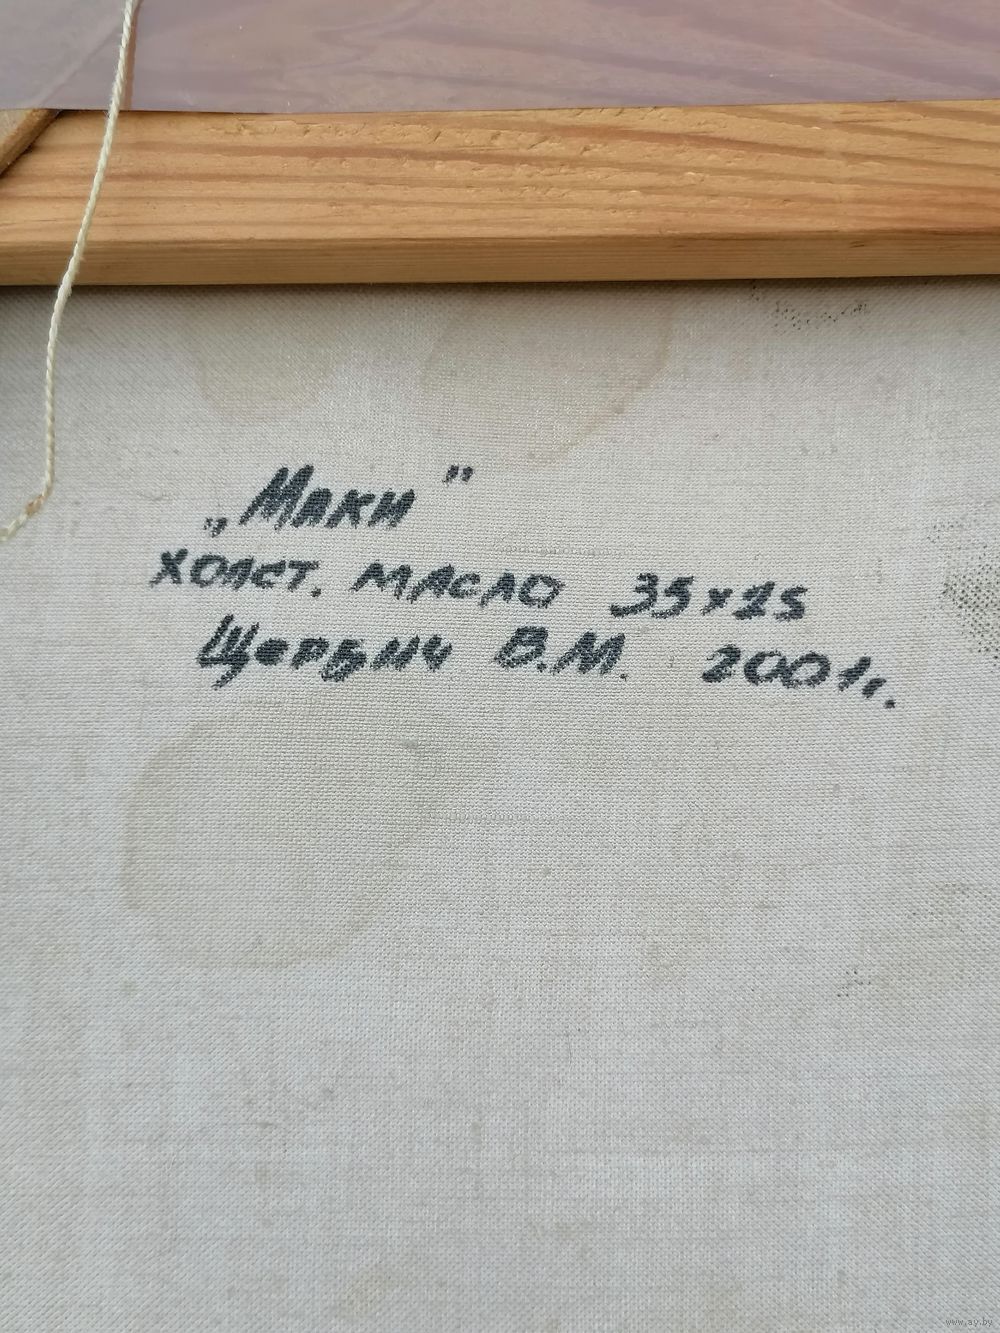 „Маки"
холст. масло 35х25
Щербич В.М. 2001г.
www.ay.by